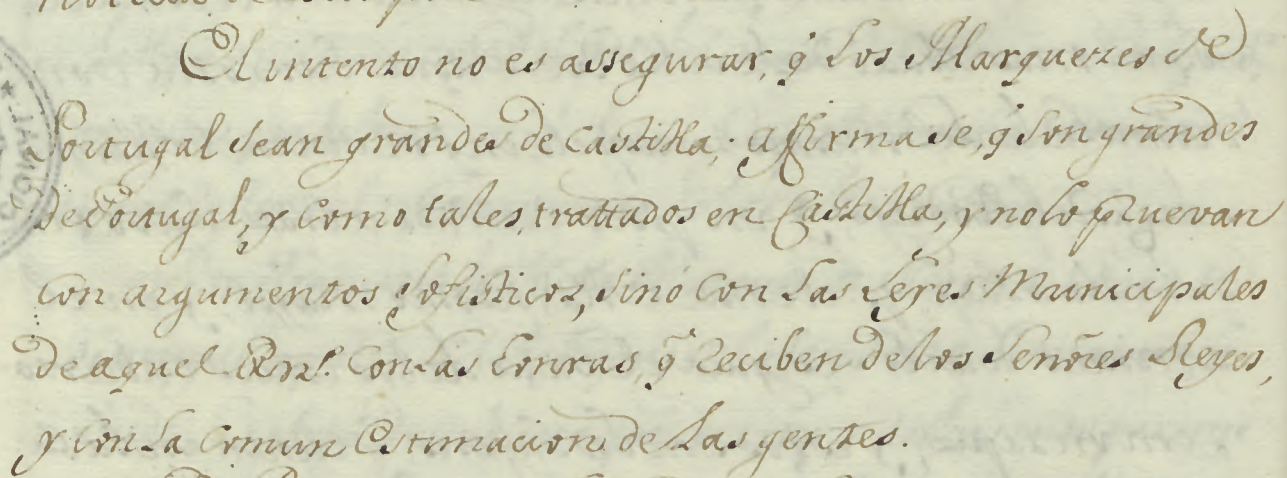 El intento no es assegurar, q̃ los Marquezes de
Portugal sean grandes de Castilla; afirmase, q̃ son grandes
de Portugal, y como tales, trattados en Castilla, y no lo pruevan
con argumentos sofisticos, sinó con las Leyes Municipales
de aquel Rn.º con las honras, q̃ reciben delos Señores Reyes,
y con la comun Estimacion de las gentes.